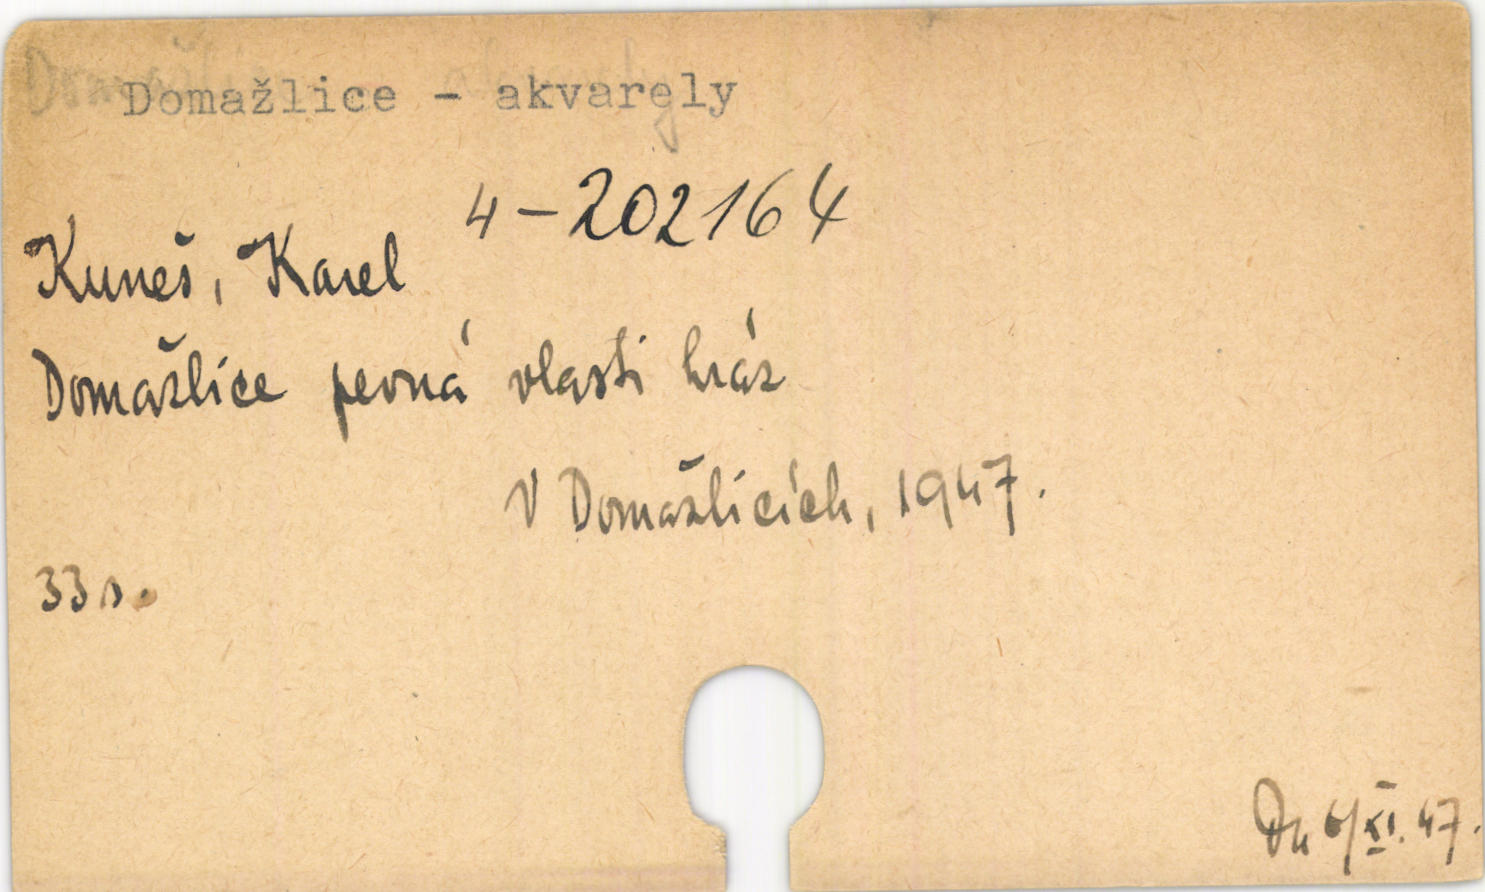 Domažlice - akvarely
4-202164
Kuneš, Karel
Domažlice pevná vlasti hráz
V Domažlicích, 1947.
33 s.
Du 6/XI. 47.